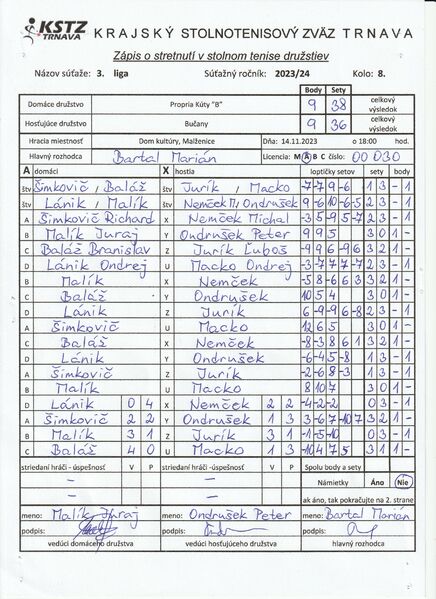 KSTZ TRNAVA KRAJSKÝ STOLNOTENISOVÝ ZVÄZ TRNAVA
Zápis o stretnutí v stolnom tenise družstiev
Názov súťaže: 3. liga Súťažný ročník: 2023/24 Kolo: 8.
Body Sety
Domáce družstvo Propria Kúty "B" 9 38 celkový výsledok
Hosťujúce družstvo Bučany 9 36 celkový výsledok
Hracia miestnosť Dom kultúry, Malženice Dňa: 14.11.2023 o 18:00 hod.
Hlavný rozhodca Bartal Marián Licencia: M A B C číslo: 00 030
A domáci X hostia loptičky setov sety body
štv Šimkovič, Baláž štv Jurík, Macko -7 -7 9 -6 1 3 - 1
štv Lánik, Malík štv Nemček M, Ondrušek 9 -6 10 -6 -5 2 3 - 1
A Šimkovič Richard X Nemček Michal -3 5 -9 5 -7 2 3 - 1
B Malík Juraj Y Ondrušek Peter 9 9 5 3 0 1 -
C Baláž Branislav Z Jurík Ľuboš -9 9 6 -9 6 3 2 1 -
D Lánik Ondrej U Macko Ondrej -3 7 7 -7 -7 2 3 - 1
B Malík X Nemček -5 8 -6 6 3 3 2 1 -
C Baláž Y Ondrušek 10 5 4 3 0 1 -
D Lánik Z Jurík 6 -9 -9 6 -8 2 3 - 1
A Šimkovič U Macko 12 6 5 3 0 1 -
C Baláž X Nemček -8 -3 8 6 1 3 2 1 -
D Lánik Y Ondrušek -6 -4 5 -8 1 3 - 1
A Šimkovič Z Jurík -2 -6 8 -3 1 3 - 1
B Malík U Macko 8 10 7 3 0 1 -
D Lánik 0 4 X Nemček 2 2 -4 -2 -2 0 3 - 1
A Šimkovič 2 2 Y Ondrušek 1 3 3 -6 7 -10 7 3 2 1 -
B Malík 3 1 Z Jurík 3 1 -1 -5 -10 0 3 - 1
C Baláž 4 0 U Macko 1 3 -10 4 7 5 3 1 1 -
striedaní hráči - úspešnosť V P striedaní hráči - úspešnosť V P Spolu body a sety
- - Námietky Áno Nie
- - ak áno, tak pokračujte na 2. strane
meno: Malík Juraj meno: Ondrušek Peter meno: Bartal Marián
podpis: podpis: podpis:
vedúci domáceho družstva vedúci hosťujúceho družstva hlavný rozhodca